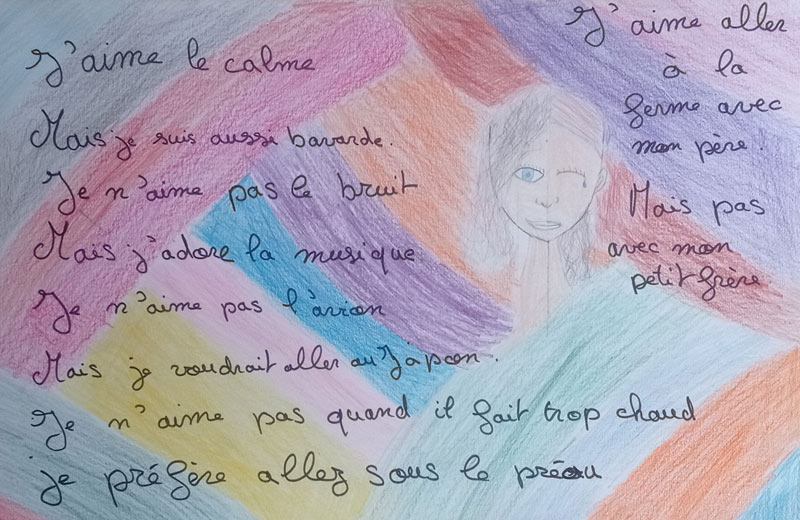 J'aime le calme
Mais je suis aussi bavarde.
Je n'aime pas le bruit
Mais j'adore la musique
Je n'aime pas l'avion
Mais je voudrait aller au Japon.
Je n'aime pas quand il fait trop chaud
je préfère allez sous le préau
J'aime aller
à la
ferme avec
mon père.
Mais pas
avec mon
petit frère